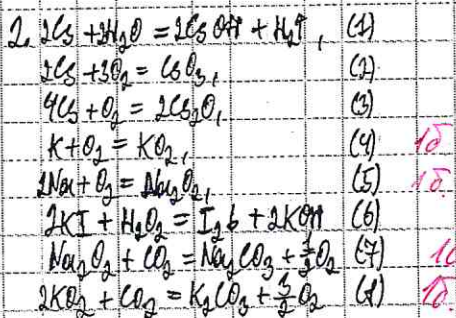 2. 2Cs + 2H₂O = 2CsOH + H₂↑, (1)
2Cs + 3O₂ = CsO₃, (2)
4Cs + O₂ = 2Cs₂O, (3)
K + O₂ = KO₂, (4) 1б
2Na + O₂ = Na₂O₂, (5) 1б.
2KI + H₂O₂ = I₂↓ + 2KOH (6)
Na₂O₂ + CO₂ = Na₂CO₃ + ½O₂ (7) 1б
2KO₂ + CO₂ = K₂CO₃ + 3/2 O₂ (8) 1б